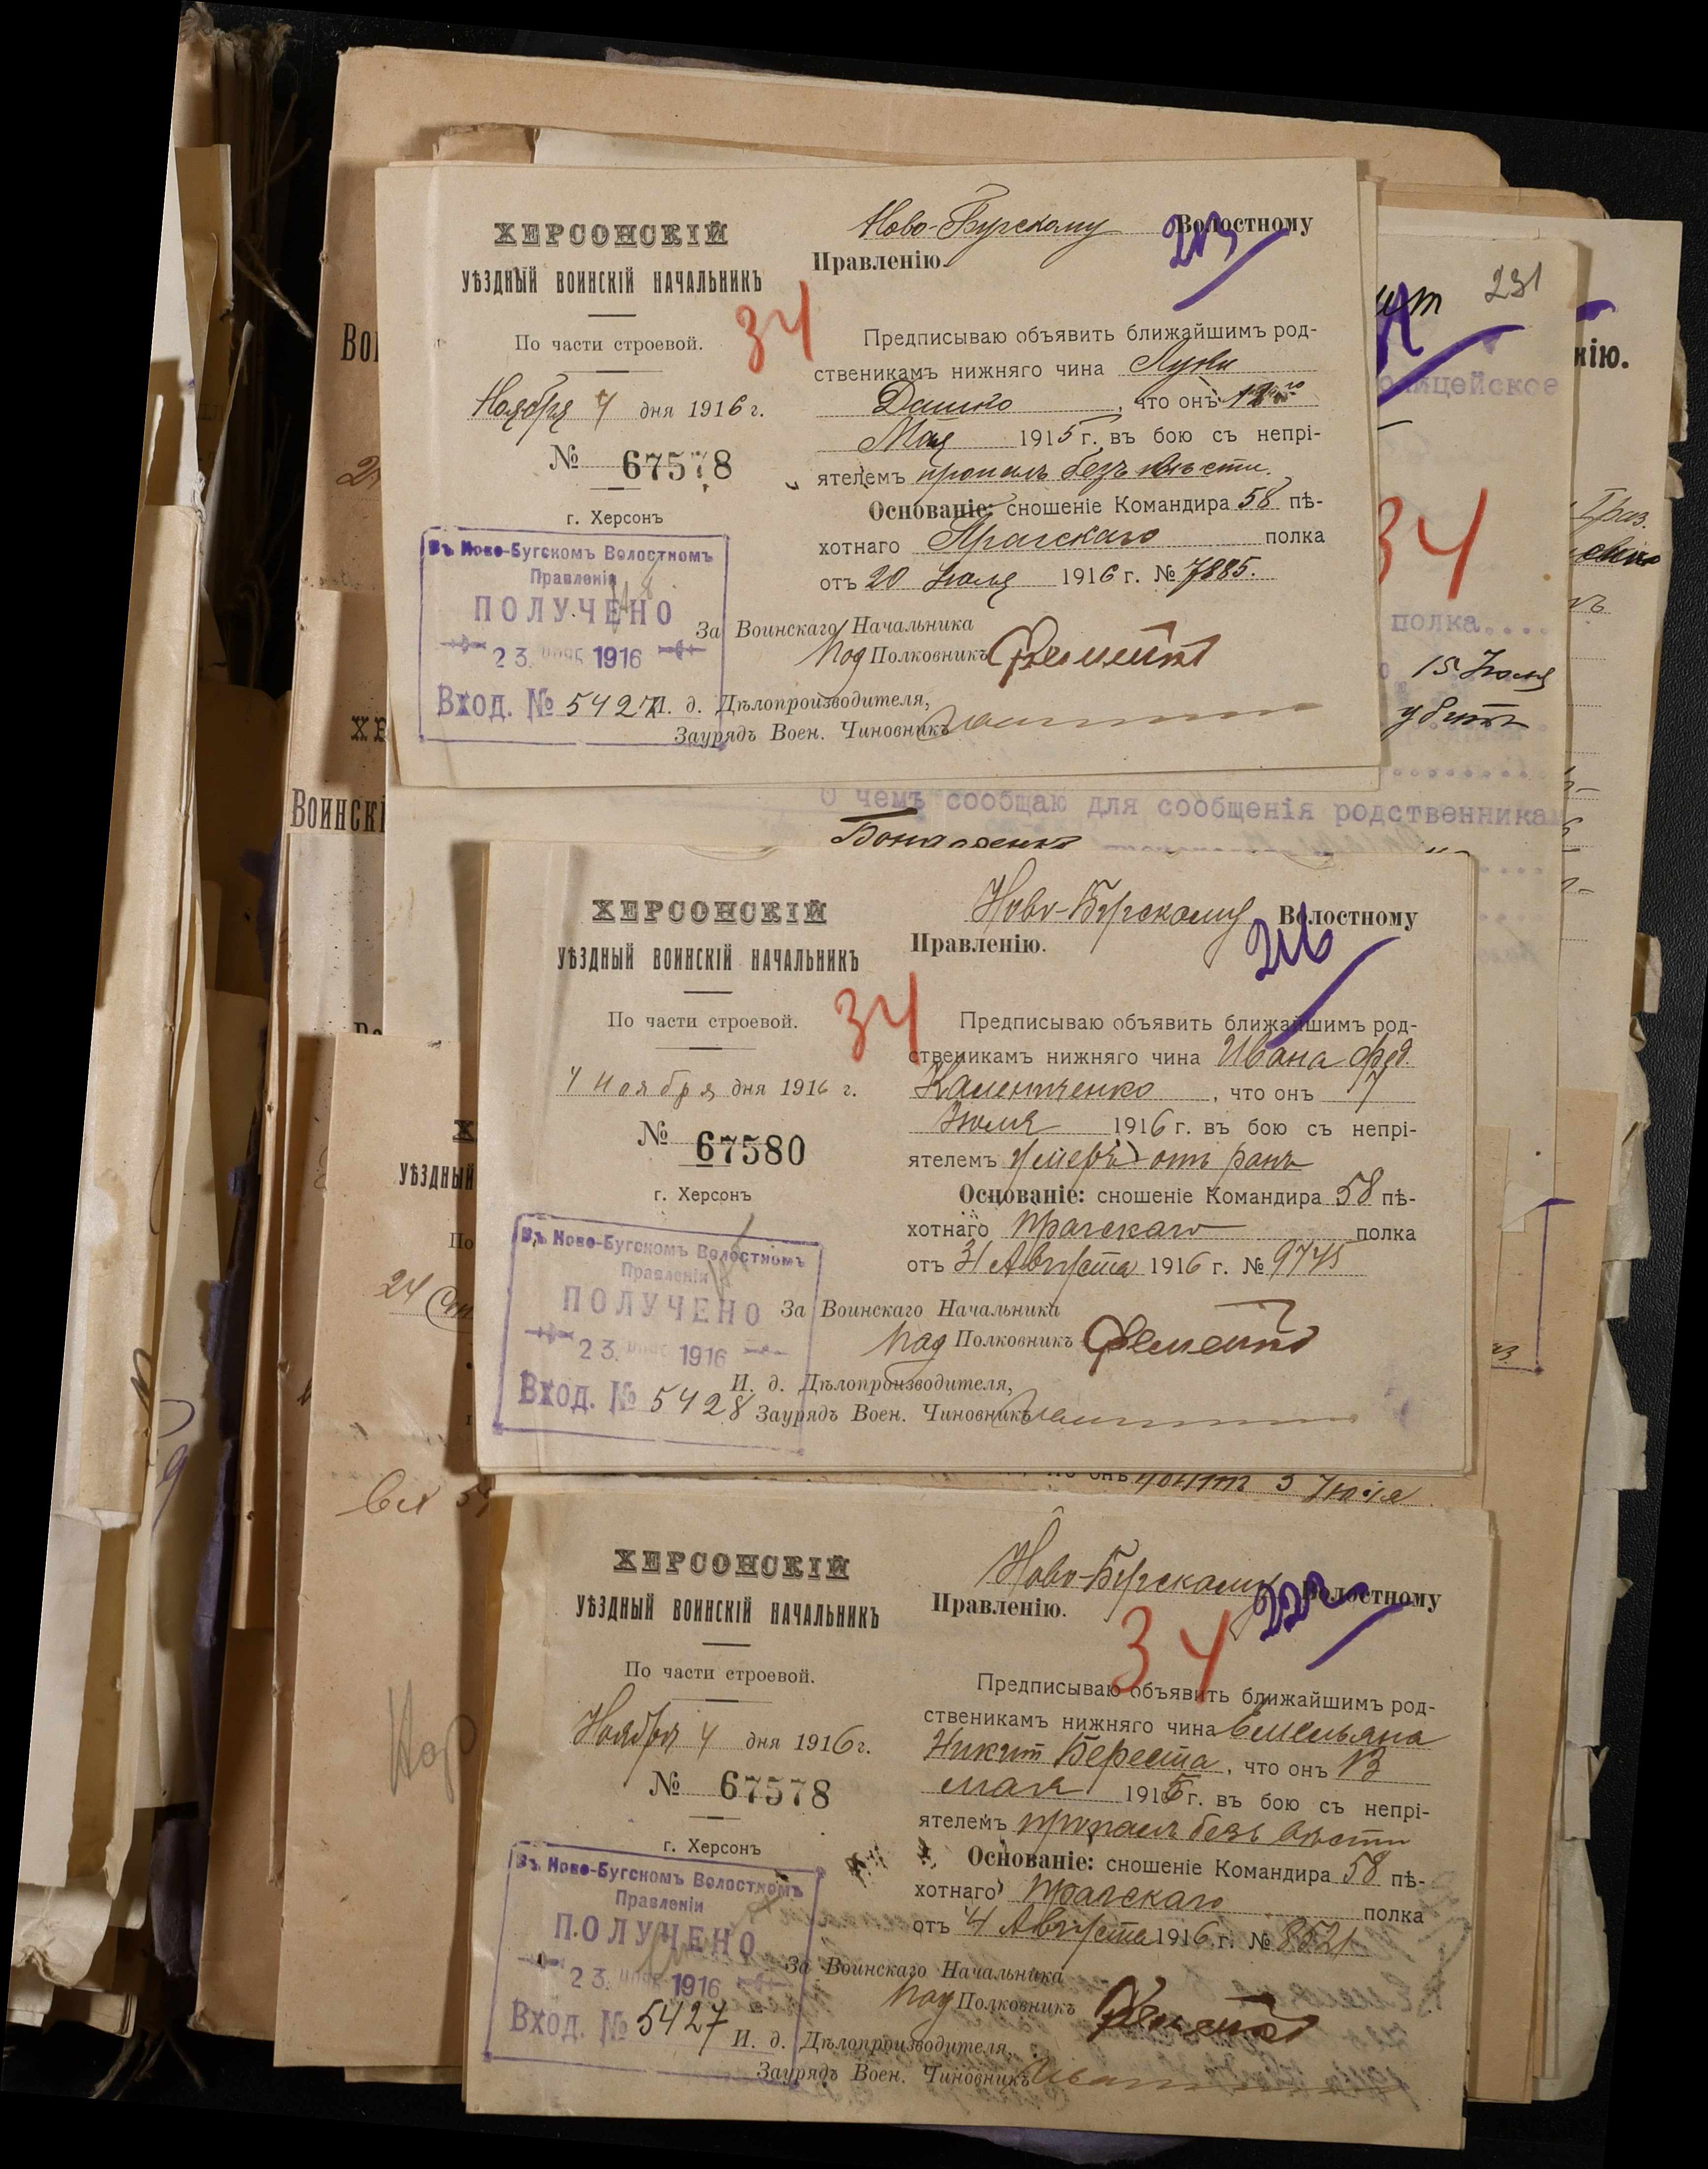 ХЕРСОНСКІЙ
УѢЗДНЫЙ ВОИНСКІЙ НАЧАЛЬНИКЪ
По части строевой.
Ноября 4 дня 1916 г.
№ 67578
г. Херсонъ
34
Въ Ново-Бугскомъ Волостномъ
Правленіи
ПОЛУЧЕНО
23 1916
Вход. № 5427
Ново-Бугскому Волостному
Правленію.
Предписываю объявить ближайшимъ род-
ственикамъ нижняго чина Луки
Дашко, что онъ
Мая 1915 г. въ бою съ непрі-
ятелемъ пропалъ безъ вѣсти.
Основаніе: сношеніе Командира 58 пѣ-
хотнаго Прагскаго полка
отъ 20 Іюля 1916 г. № 7885.
За Воинскаго Начальника
Под Полковникъ
И. д. Дѣлопроизводителя,
Заурядъ Воен. Чиновникъ
231
нію.
34
полка....
15 Іюля
убитъ
О чемъ сообщаю для сообщенія родственника
ХЕРСОНСКІЙ
УѢЗДНЫЙ ВОИНСКІЙ НАЧАЛЬНИКЪ
По части строевой.
4 ноября дня 1916 г.
№ 67580
г. Херсонъ
34
Въ Ново-Бугскомъ Волостномъ
Правленіи
ПОЛУЧЕНО
23 1916
Вход. № 5428
Ново-Бугскому Волостному
216
Правленію.
Предписываю объявить ближайшимъ род-
ственикамъ нижняго чина Ивана Фед.
, что онъ 7
Іюля 1916 г. въ бою съ непрі-
ятелемъ умеръ отъ ранъ
Основаніе: сношеніе Командира 58 пѣ-
хотнаго Прагскаго полка
отъ 31 Августа 1916 г. № 9745
За Воинскаго Начальника
Под Полковникъ
И. д. Дѣлопроизводителя,
Заурядъ Воен. Чиновникъ
3 Іюля
ХЕРСОНСКІЙ
УѢЗДНЫЙ ВОИНСКІЙ НАЧАЛЬНИКЪ
По части строевой.
Ноября 4 дня 1916 г.
№ 67578
г. Херсонъ
Въ Ново-Бугскомъ Волостномъ
Правленіи
ПОЛУЧЕНО
23 1916
Вход. № 5427
Ново-Бугскому Волостному
222
Правленію.
34
Предписываю объявить ближайшимъ род-
ственикамъ нижняго чина Емельяна
Никит Береста, что онъ 13
мая 1915 г. въ бою съ непрі-
ятелемъ пропалъ безъ вѣсти
Основаніе: сношеніе Командира 58 пѣ-
хотнаго Прагскаго полка
отъ 4 Августа 1916 г. № 8521
За Воинскаго Начальника
Под Полковникъ
И. д. Дѣлопроизводителя,
Заурядъ Воен. Чиновникъ